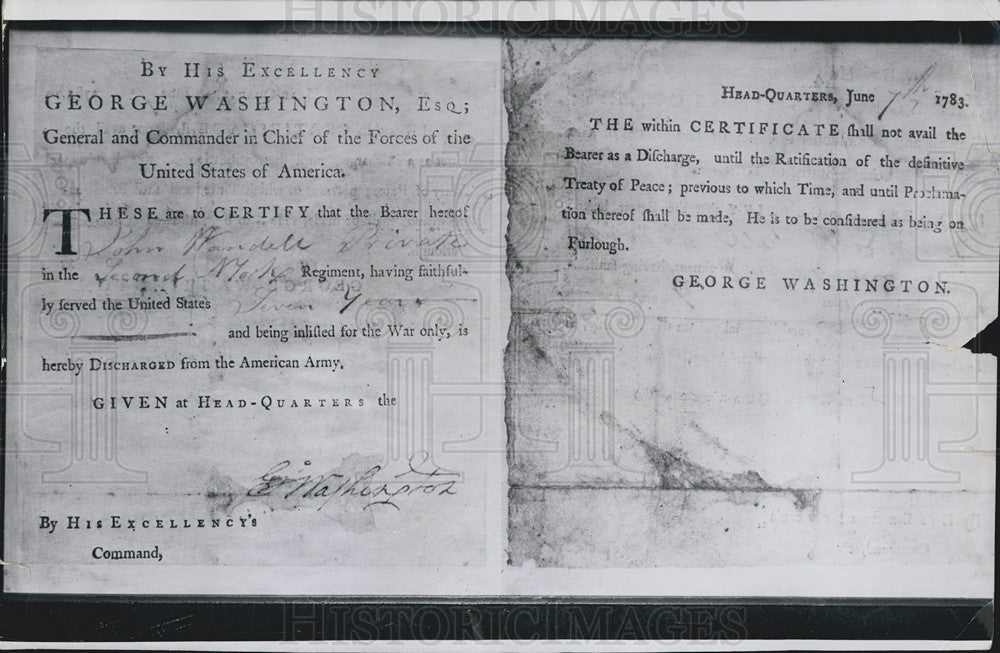 HISTORIC IMAGES
By His Excellency
GEORGE WASHINGTON, Esq;
General and Commander in Chief of the Forces of the
United States of America.
THESE are to CERTIFY that the Bearer hereof
John Wandell Private
in the Second York Regiment, having faithful-
ly served the United States Seven Years
and being inlisted for the War only, is
hereby Discharged from the American Army.
GIVEN at Head-Quarters the
Go Washington
By His Excellency's
Command,
Head-Quarters, June 7th 1783.
THE within CERTIFICATE shall not avail the
Bearer as a Discharge, until the Ratification of the definitive
Treaty of Peace; previous to which Time, and until Proclama-
tion thereof shall be made, He is to be considered as being on
Furlough.
GEORGE WASHINGTON.
HISTORIC IMAGES